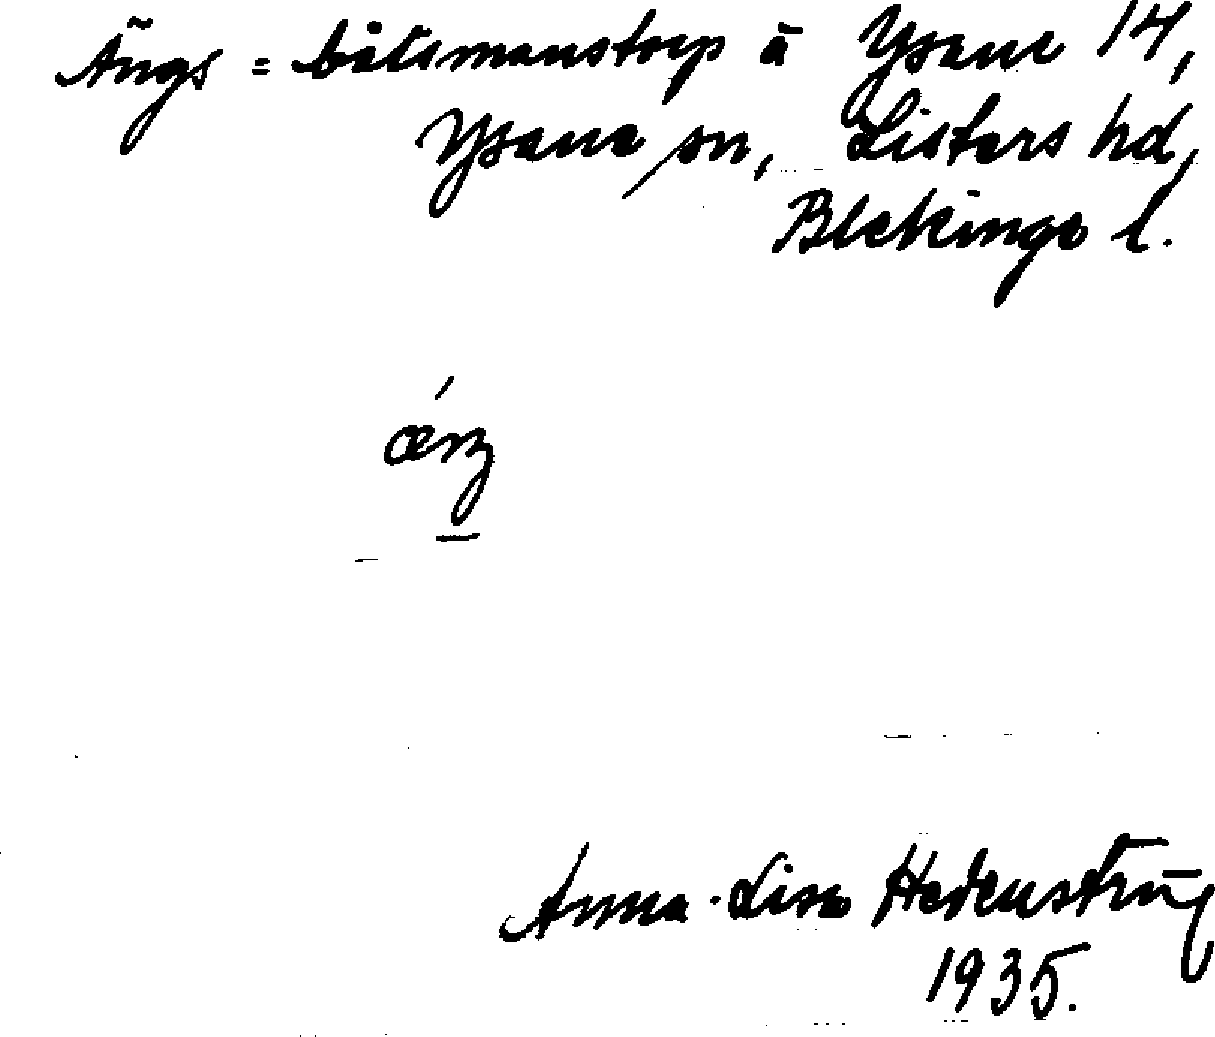 Ängs = båtsmanstorp å Ysane 14,
Ysane sn, Listers hd,
Blekinge l.
Anna-Lisa Hedenstrüg
1935.